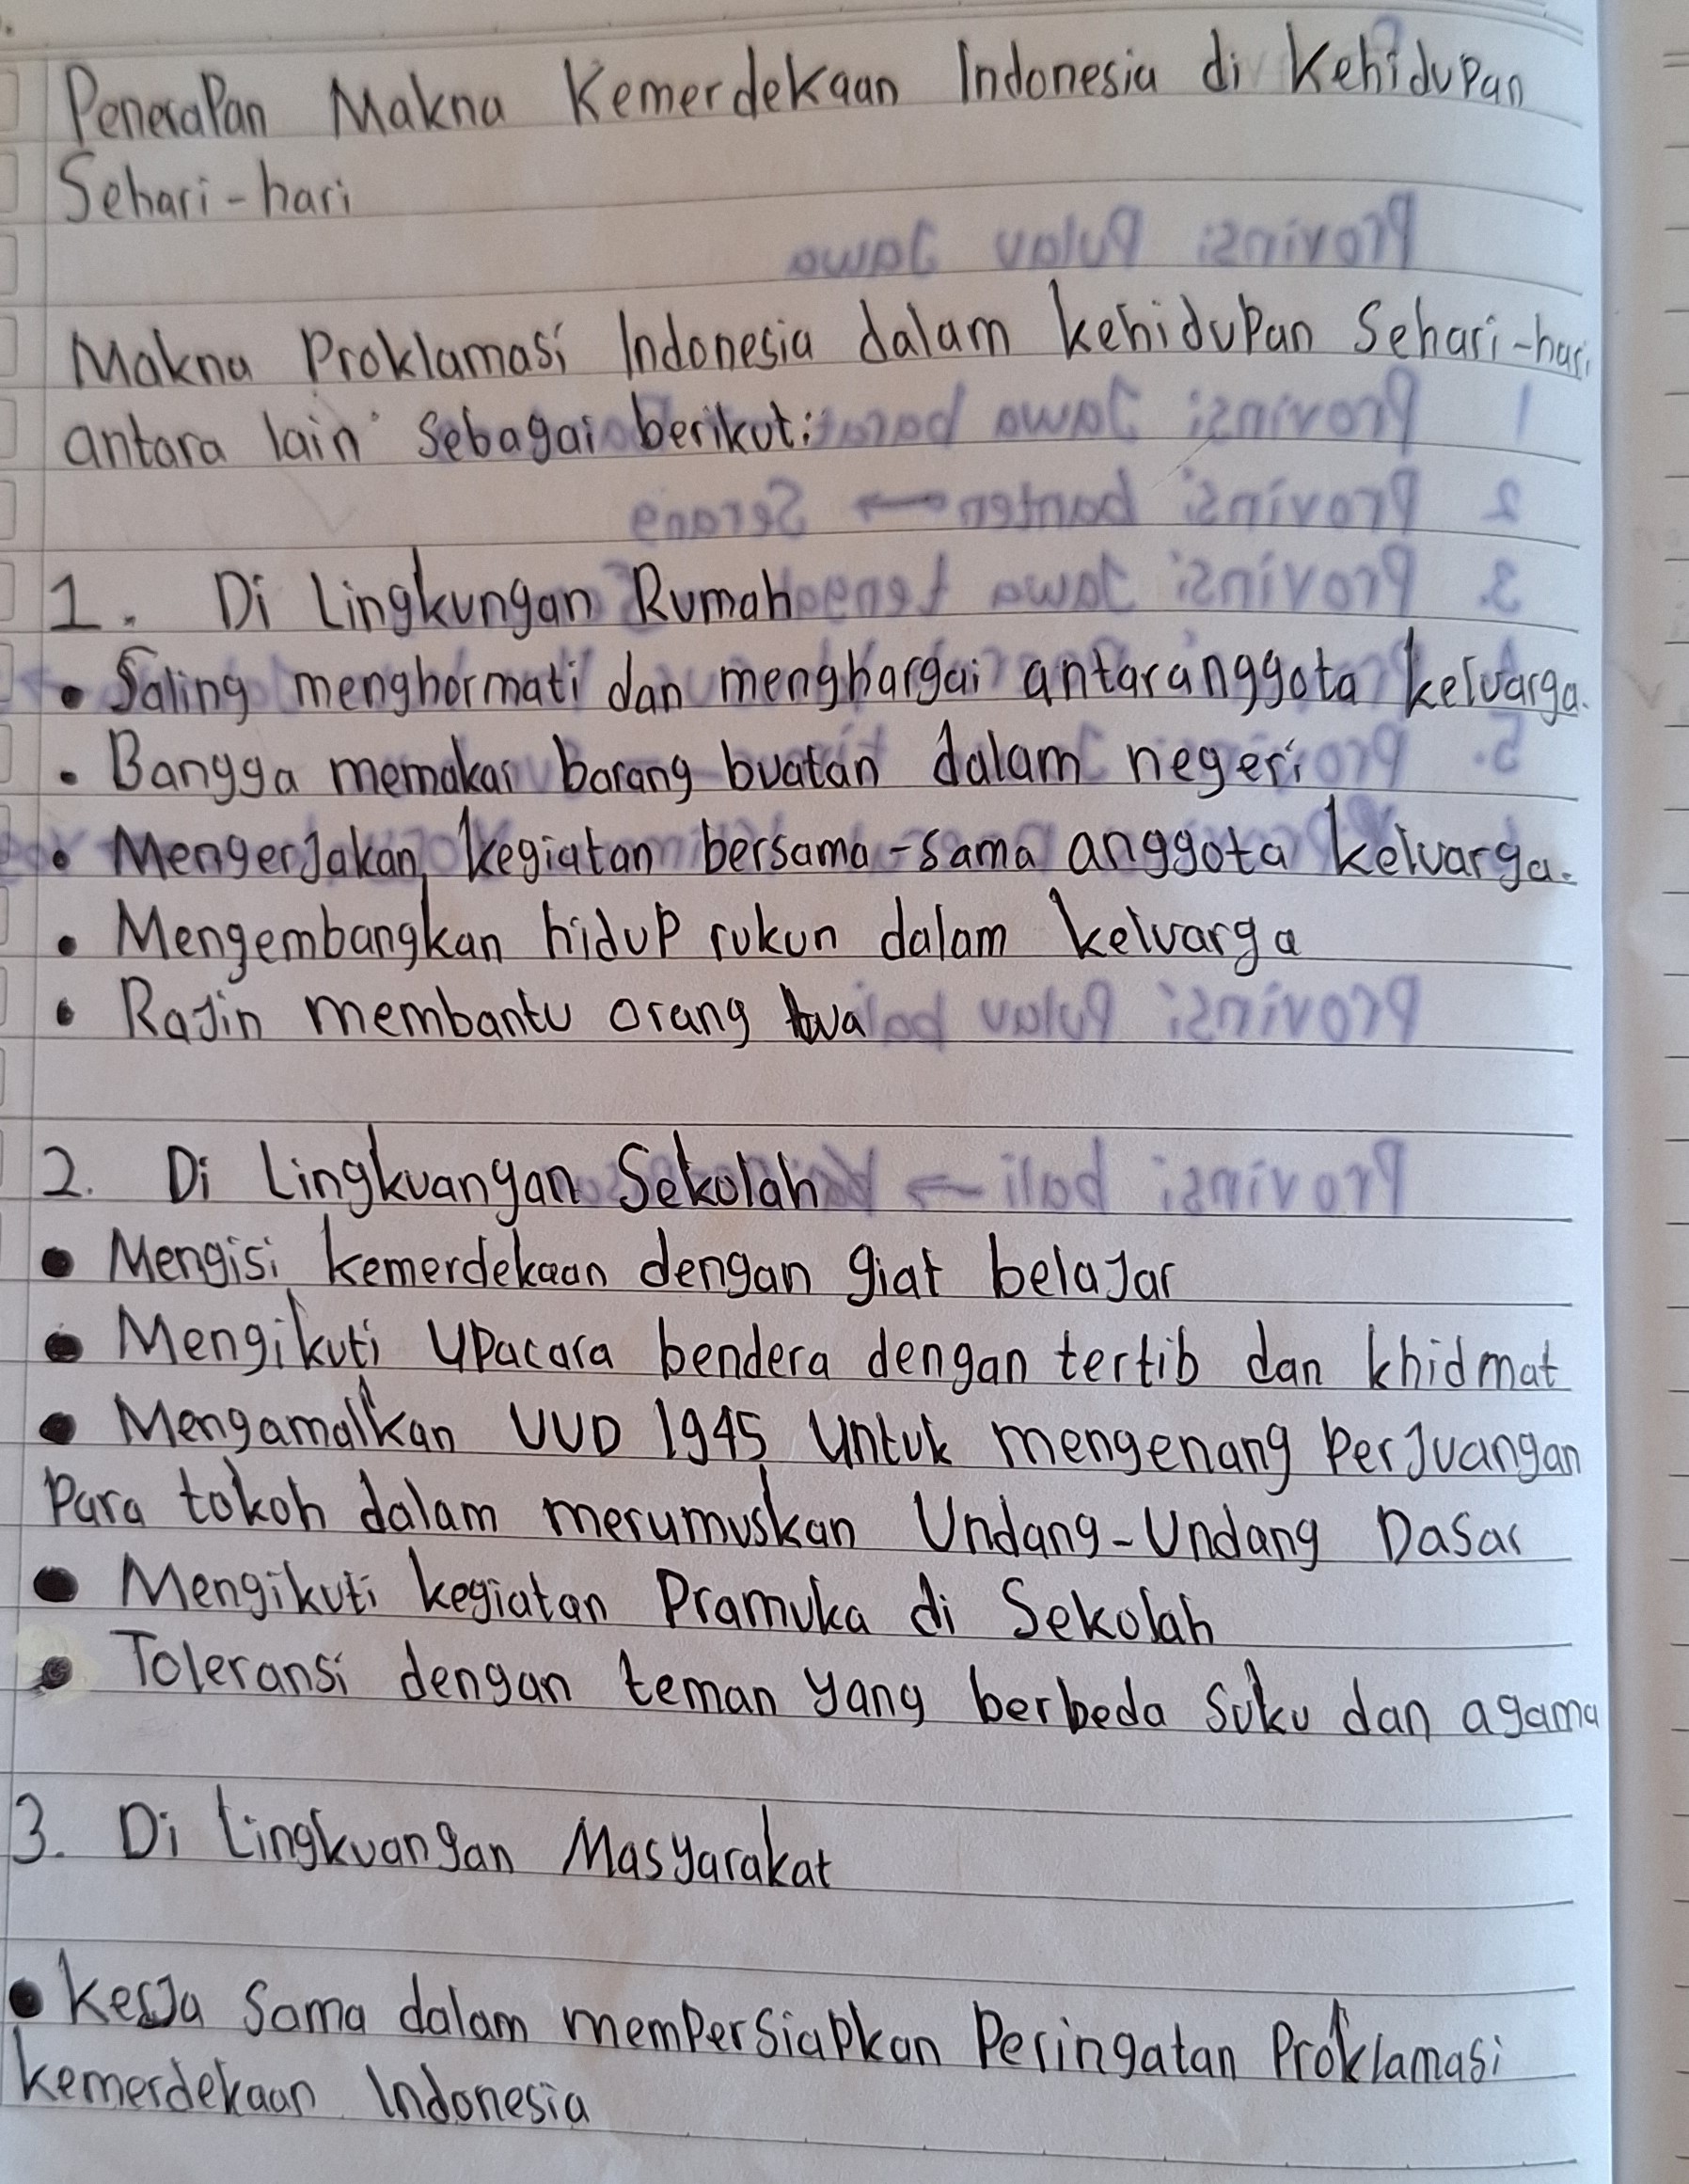 Penerapan Makna Kemerdekaan Indonesia di Kehidupan
Sehari-hari
Makna Proklamasi Indonesia dalam kehidupan Sehari-hari
antara lain sebagai berikut:
1. Di Lingkungan Rumah
• Saling menghormati dan menghargai antaranggota keluarga.
• Bangga memakai barang buatan dalam negeri
• Mengerjakan kegiatan bersama-sama anggota keluarga.
• Mengembangkan hidup rukun dalam keluarga
• Rajin membantu orang tua
2. Di Lingkuangan Sekolah
• Mengisi kemerdekaan dengan giat belajar
• Mengikuti upacara bendera dengan tertib dan khidmat
• Mengamalkan UUD 1945 untuk mengenang perjuangan
para tokoh dalam merumuskan Undang-Undang Dasar
• Mengikuti kegiatan Pramuka di Sekolah
• Toleransi dengan teman yang berbeda suku dan agama
3. Di Lingkuangan Masyarakat
• Kerja sama dalam mempersiapkan Peringatan Proklamasi
kemerdekaan Indonesia